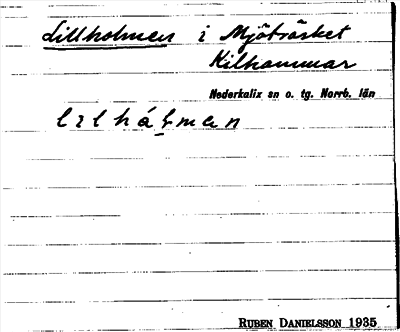 Lillholmen i Mjöträsket
Kilhammar
Nederkalix sn o. tg. Norrb. län
RUBEN DANIELSSON 1935